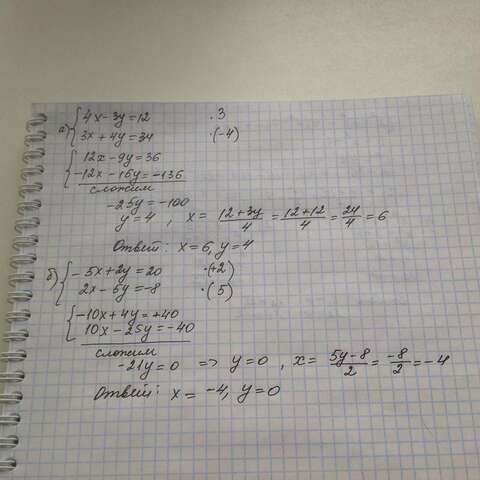 а) { 4x - 3y = 12 · 3
3x + 4y = 34 · (-4)
{ 12x - 9y = 36
-12x - 16y = -136
сложим
-25y = -100
y = 4 , x = (12+3y)/4 = (12+12)/4 = 24/4 = 6
Ответ: x = 6, y = 4
б) { -5x + 2y = 20 · (+2)
2x - 5y = -8 · (5)
{ -10x + 4y = +40
10x - 25y = -40
сложим
-21y = 0 => y = 0 , x = (5y-8)/2 = -8/2 = -4
Ответ: x = -4, y = 0